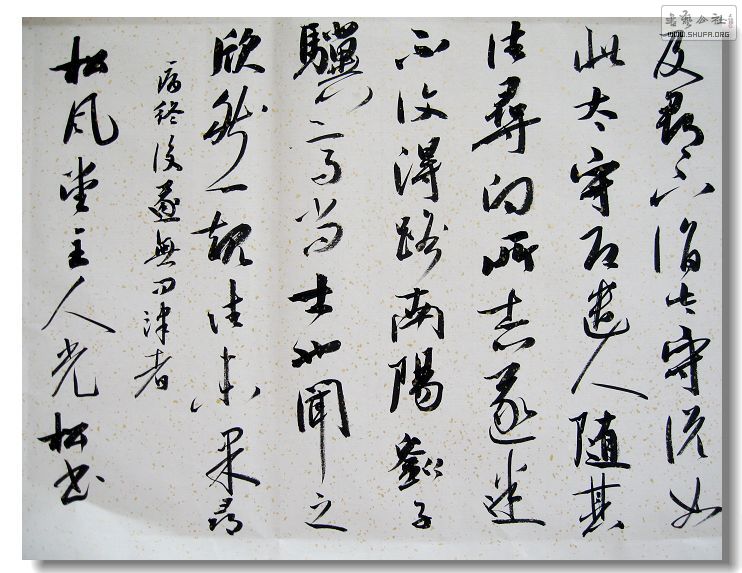 及郡下詣太守說如
此太守即遣人隨其
往尋向所志遂迷
不復得路南陽劉子
驥高尚士也聞之
欣然一規往未果尋
病終後遂無問津者
松風堂主人光松書
书艺公社
WWW.SHUFA.ORG